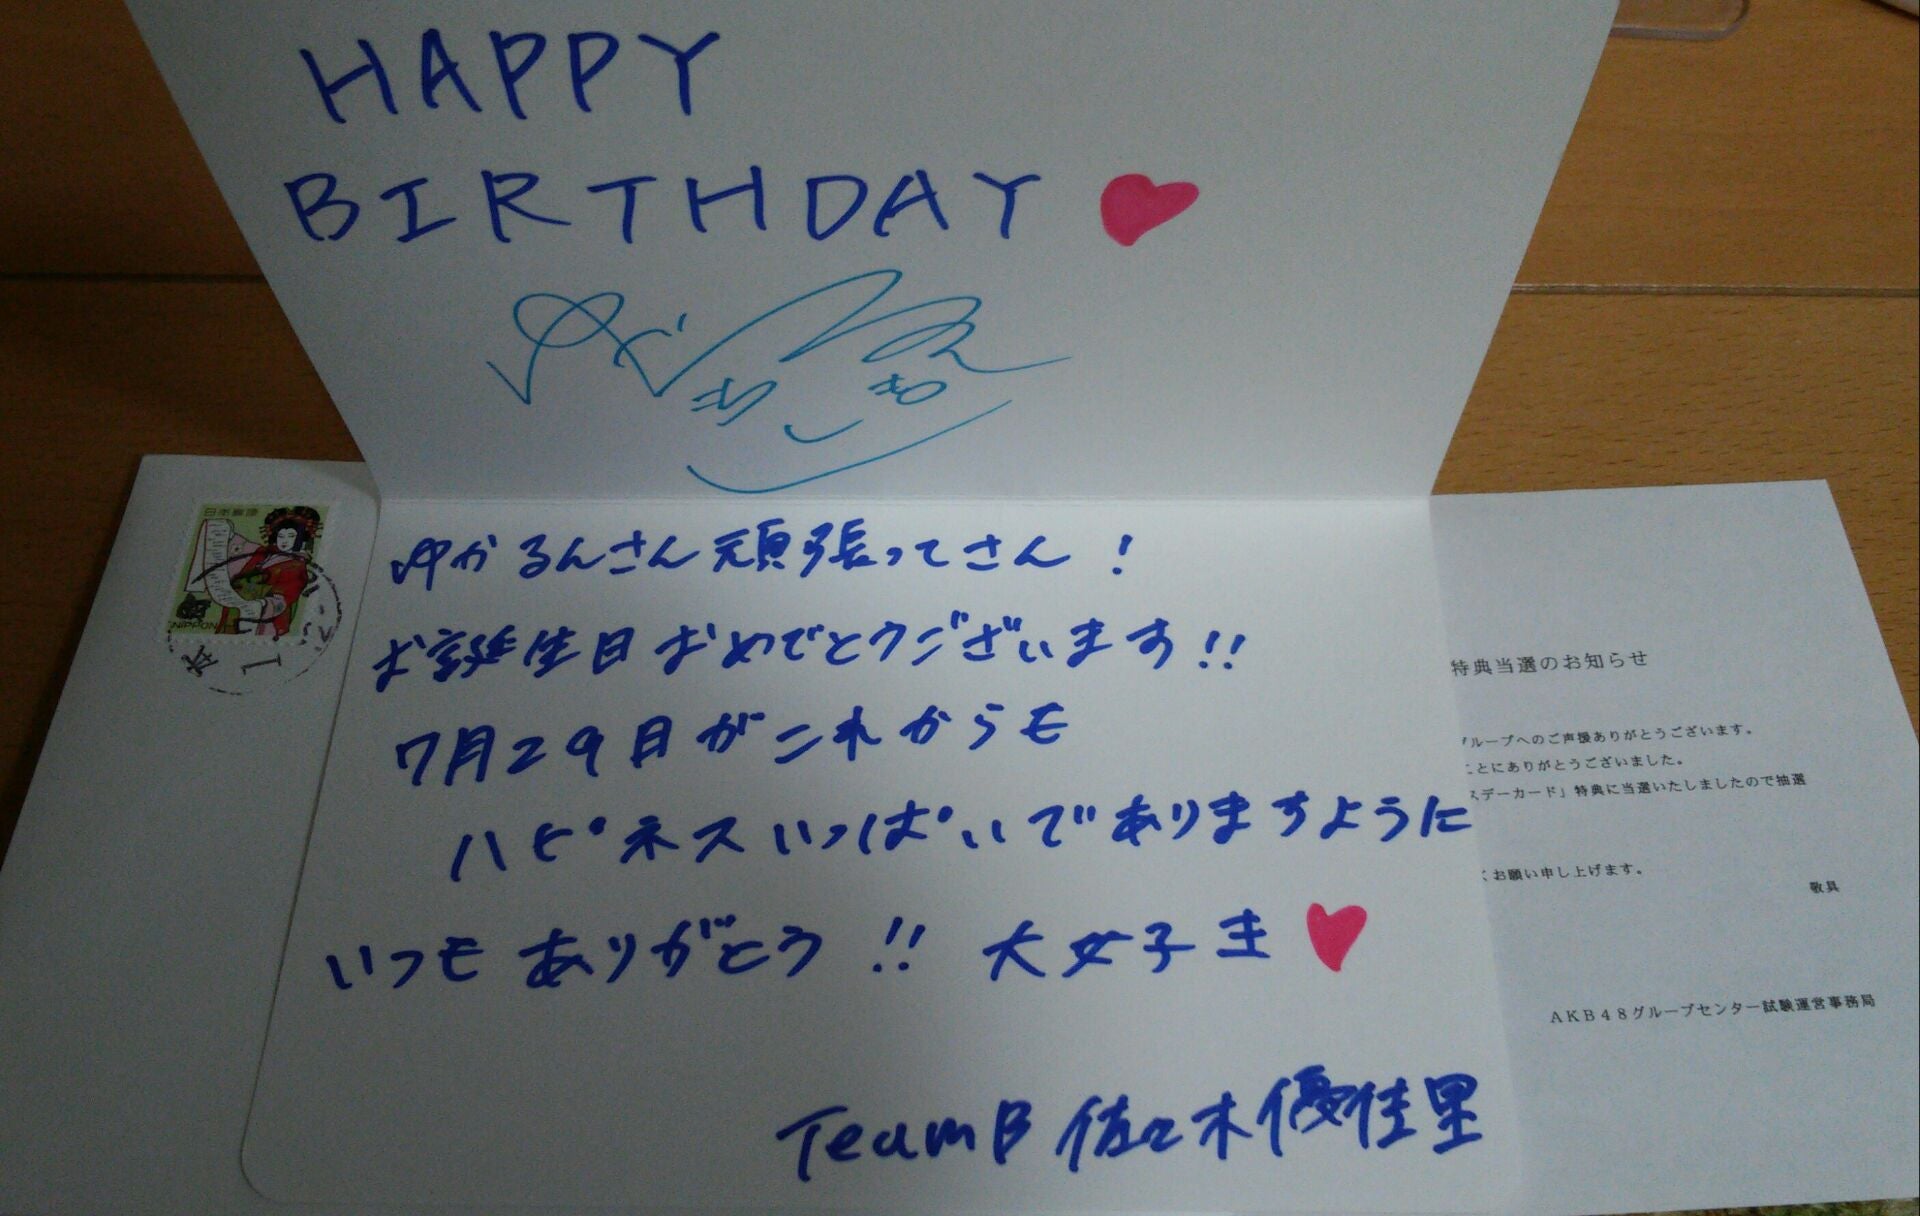 HAPPY
BIRTHDAY
ゆかるんさん頑張ってさん!
お誕生日おめでとうございます!!
7月29日がこれからも
ハピネスいっぱいでありますように
いつもありがとう!! 大好き
TeamB 佐々木優佳里
日本郵便
NIPPON
特典当選のお知らせ
グループへのご声援ありがとうございます。
ことにありがとうございました。
スデーカード」特典に当選いたしましたので抽選
くお願い申し上げます。
敬具
AKB48グループセンター試験運営事務局